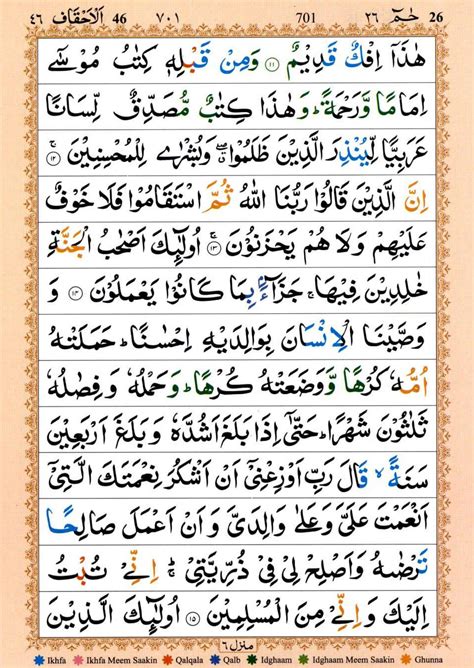 ٤٦ اَلْاَحْقَاف 46 ٧٠١ 701 حٰمٓ ٢٦ 26
هٰذَاۤ اِفْكٌ قَدِيْمٌ ۝۱۱ وَمِنْ قَبْلِهٖ كِتٰبُ مُوْسٰۤى
اِمَامًا وَّرَحْمَةً ؕ وَهٰذَا كِتٰبٌ مُّصَدِّقٌ لِّسَانًا
عَرَبِيًّا لِّيُنْذِرَ الَّذِيْنَ ظَلَمُوْا ۖ وَبُشْرٰى لِلْمُحْسِنِيْنَ ۝۱۲
اِنَّ الَّذِيْنَ قَالُوْا رَبُّنَا اللّٰهُ ثُمَّ اسْتَقَامُوْا فَلَا خَوْفٌ
عَلَيْهِمْ وَلَا هُمْ يَحْزَنُوْنَ ۝۱۳ اُولٰٓئِكَ اَصْحٰبُ الْجَنَّةِ
خٰلِدِيْنَ فِيْهَا ۚ جَزَآءًۢ بِمَا كَانُوْا يَعْمَلُوْنَ ۝۱۴ وَ
وَصَّيْنَا الْاِنْسَانَ بِوَالِدَيْهِ اِحْسٰنًا ؕ حَمَلَتْهُ
اُمُّهٗ كُرْهًا وَّوَضَعَتْهُ كُرْهًا ؕ وَحَمْلُهٗ وَفِصٰلُهٗ
ثَلٰثُوْنَ شَهْرًا ؕ حَتّٰۤى اِذَا بَلَغَ اَشُدَّهٗ وَبَلَغَ اَرْبَعِيْنَ
سَنَةً ۙ قَالَ رَبِّ اَوْزِعْنِيْۤ اَنْ اَشْكُرَ نِعْمَتَكَ الَّتِيْۤ
اَنْعَمْتَ عَلَيَّ وَعَلٰى وَالِدَيَّ وَاَنْ اَعْمَلَ صَالِحًا
تَرْضٰىهُ وَاَصْلِحْ لِيْ فِيْ ذُرِّيَّتِيْ ؕ اِنِّيْ تُبْتُ
اِلَيْكَ وَاِنِّيْ مِنَ الْمُسْلِمِيْنَ ۝۱۵ اُولٰٓئِكَ الَّذِيْنَ
منزل ٦
Ikhfa Ikhfa Meem Saakin Qalqala Qalb Idghaam Idghaam Meem Saakin Ghunna